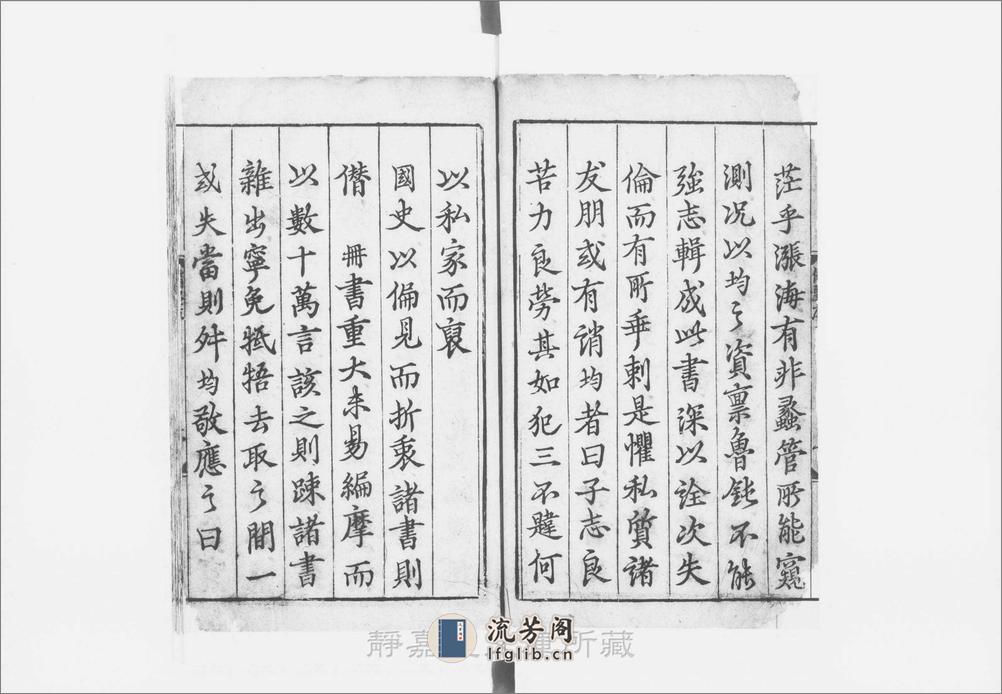 茫乎漲海有非蠡管所能窺
測况以均之資禀魯鈍不能
強志輯成此書深以詮次失
倫而有所乖剌是懼私質諸
友朋或有誚均者曰子志良
苦力良勞其如犯三不韙何
以私家而裒
國史以偏見而折衷諸書則
僭　冊書重大未易編摩而
以數十萬言該之則踈諸書
雜出寧免牴牾去取之間一
或失當則舛均敬應之曰
靜嘉 所藏
流芳阁
lfglib.cn